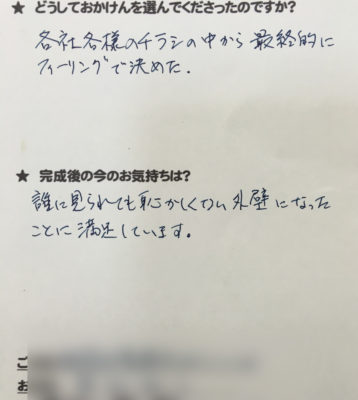 ★ どうしておかけんを選んでくださったのですか?
各社各様のチラシの中から最終的に
フィーリングで決めた.
★ 完成後の今のお気持ちは?
誰に見られても恥かしくない外壁になった
ことに満足しています。
ご
お